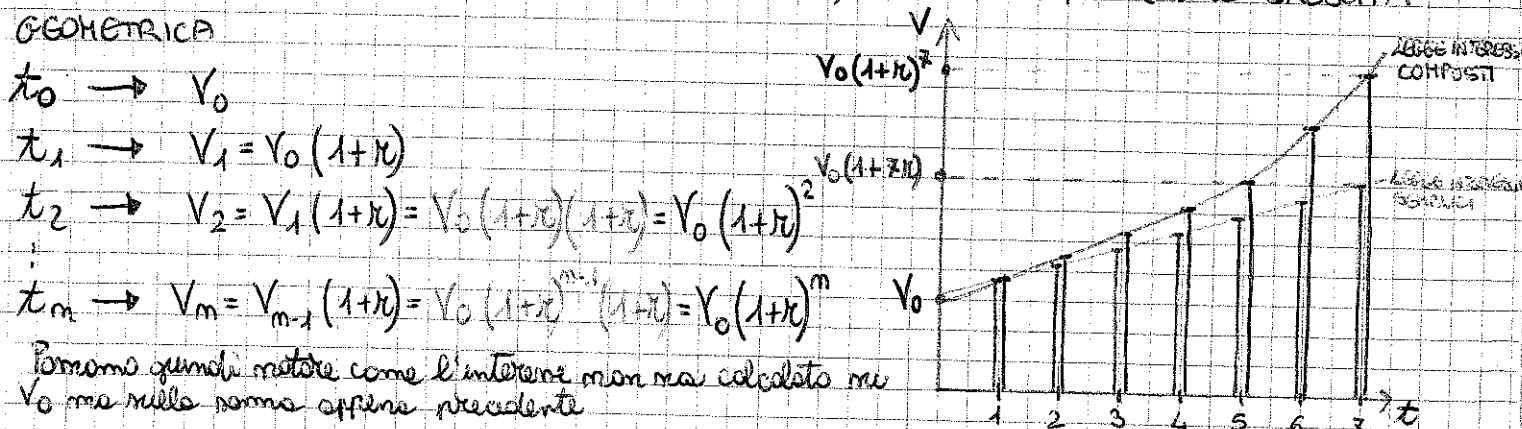 CRESCITA
GEOMETRICA
t₀ → V₀
t₁ → V₁ = V₀ (1+r)
t₂ → V₂ = V₁ (1+r) = V₀ (1+r)(1+r) = V₀ (1+r)²
⋮
tₙ → Vₙ = Vₙ₋₁ (1+r) = V₀ (1+r)ⁿ⁻¹ (1+r) = V₀ (1+r)ⁿ
Possiamo quindi notare come l'interesse non va calcolato su
V₀ ma sulla somma appena precedente
V
V₀(1+r)⁷
LEGGE INTERESSI
COMPOSTI
V₀(1+7r)
LEGGE INTERESSI
SEMPLICI
V₀
1 2 3 4 5 6 7 t